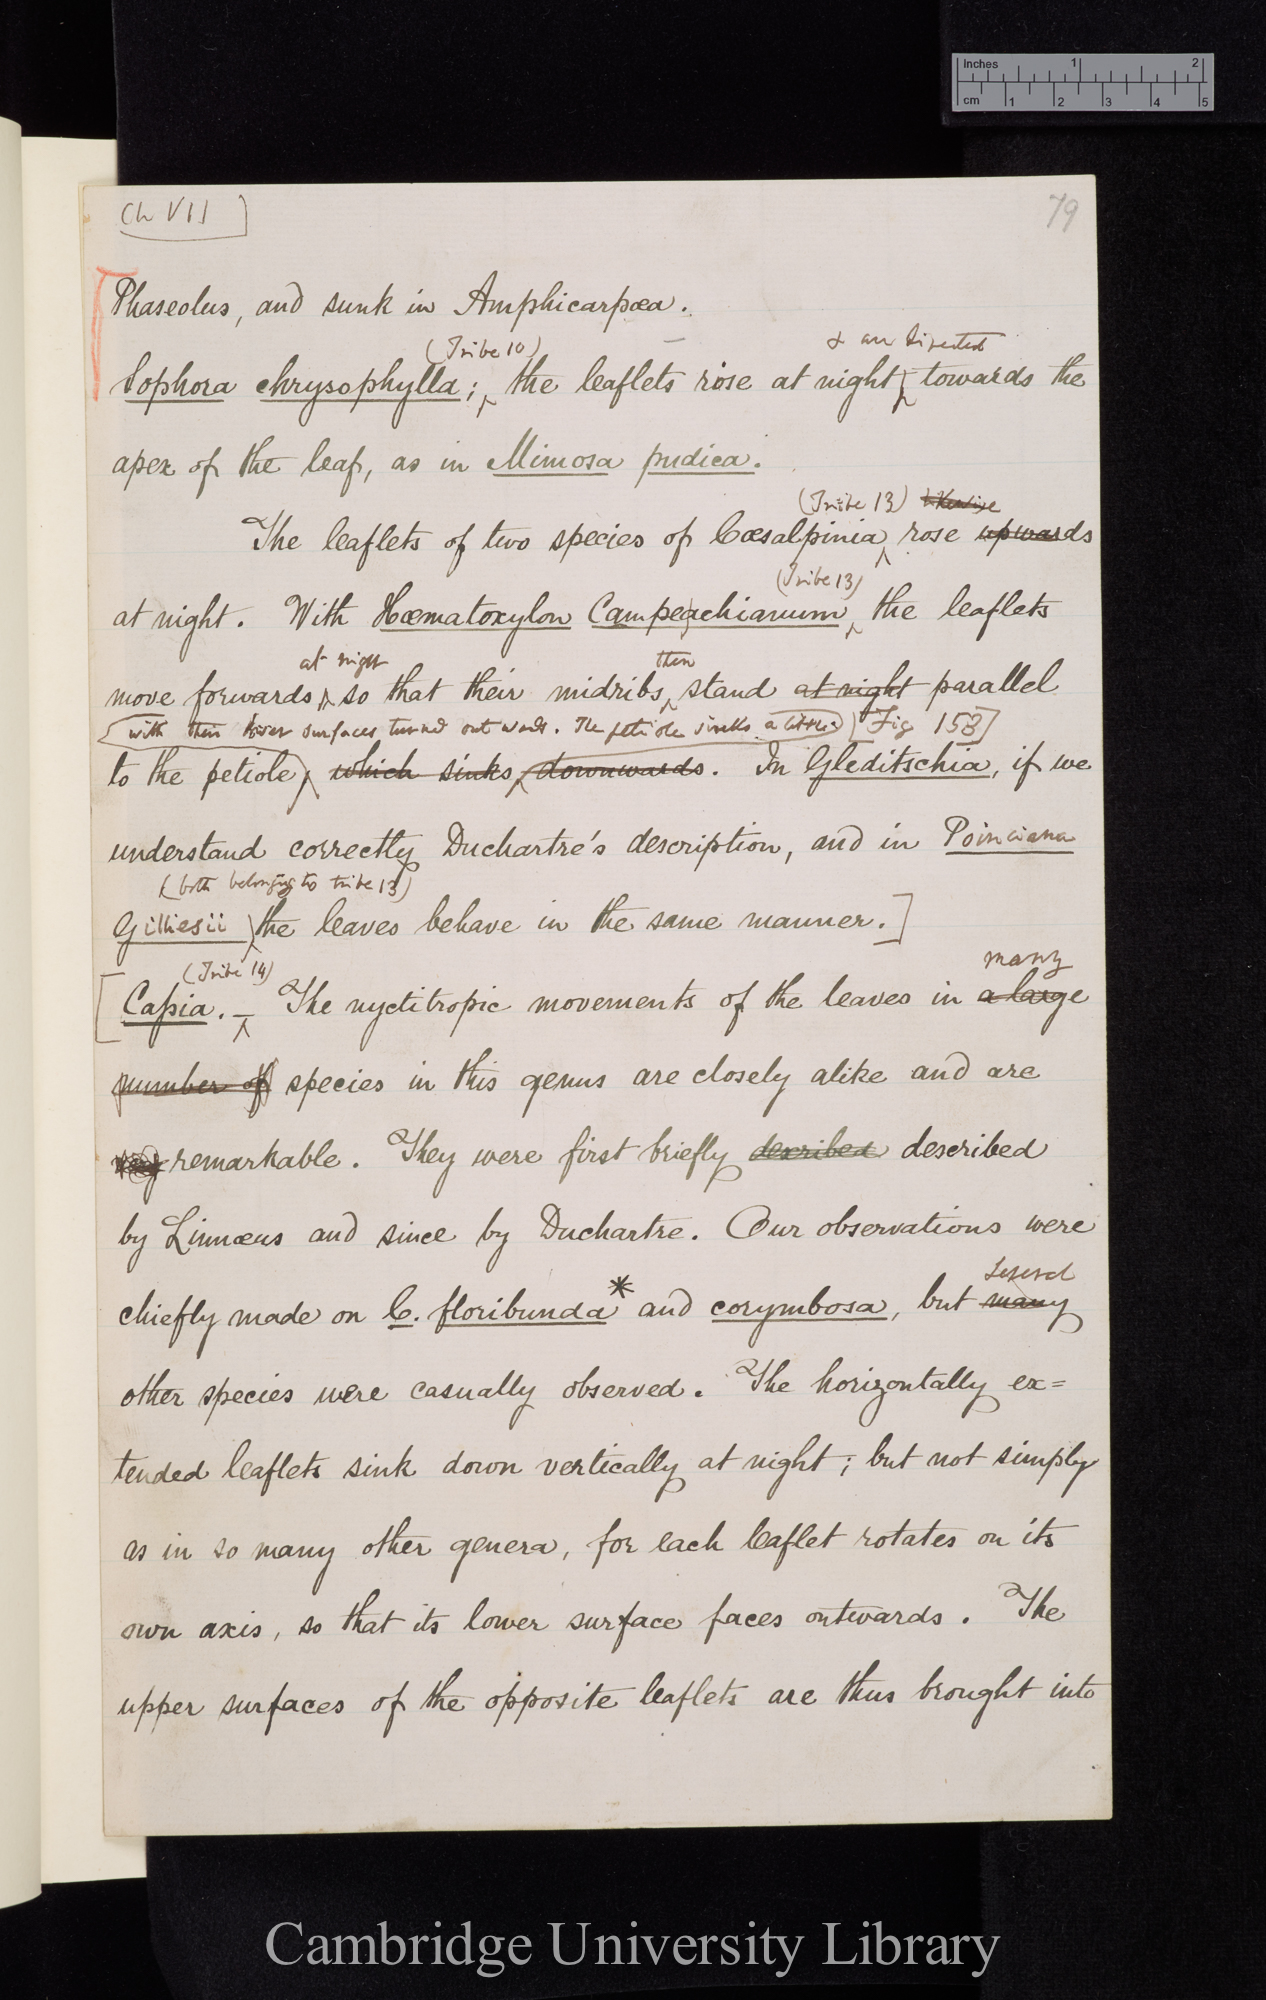 Inches 1 2
cm 1 2 3 4 5
Ch VII]
79
Phaseolus, and sunk in Amphicarpæa.
(Tribe 10) & are directed
Sophora chrysophylla; the leaflets rose at night, towards the
apex of the leaf, as in Mimosa pudica.
(Tribe 13) likewise
The leaflets of two species of Cæsalpinia rose upwards
(Tribe 13)
at night. With Hæmatoxylon Campeachianum, the leaflets
at night then
move forwards, so that their midribs stand at night parallel
with their lower surfaces turned outwards. The petiole sinks a little [Fig 153]
to the petiole, which sinks downwards. In Gleditschia, if we
understand correctly Duchartre's description, and in Poinciana
(both belonging to tribe 13)
Gilliesii, the leaves behave in the same manner.]
(Tribe 14) many
[Cassia. — The nyctitropic movements of the leaves in a large
number of species in this genus are closely alike and are
very remarkable. They were first briefly described described
by Linnæus and since by Duchartre. Our observations were
several
chiefly made on C. floribunda* and corymbosa, but many
other species were casually observed. The horizontally ex=
tended leaflets sink down vertically at night; but not simply
as in so many other genera, for each leaflet rotates on its
own axis, so that its lower surface faces outwards. The
upper surfaces of the opposite leaflets are thus brought into
Cambridge University Library